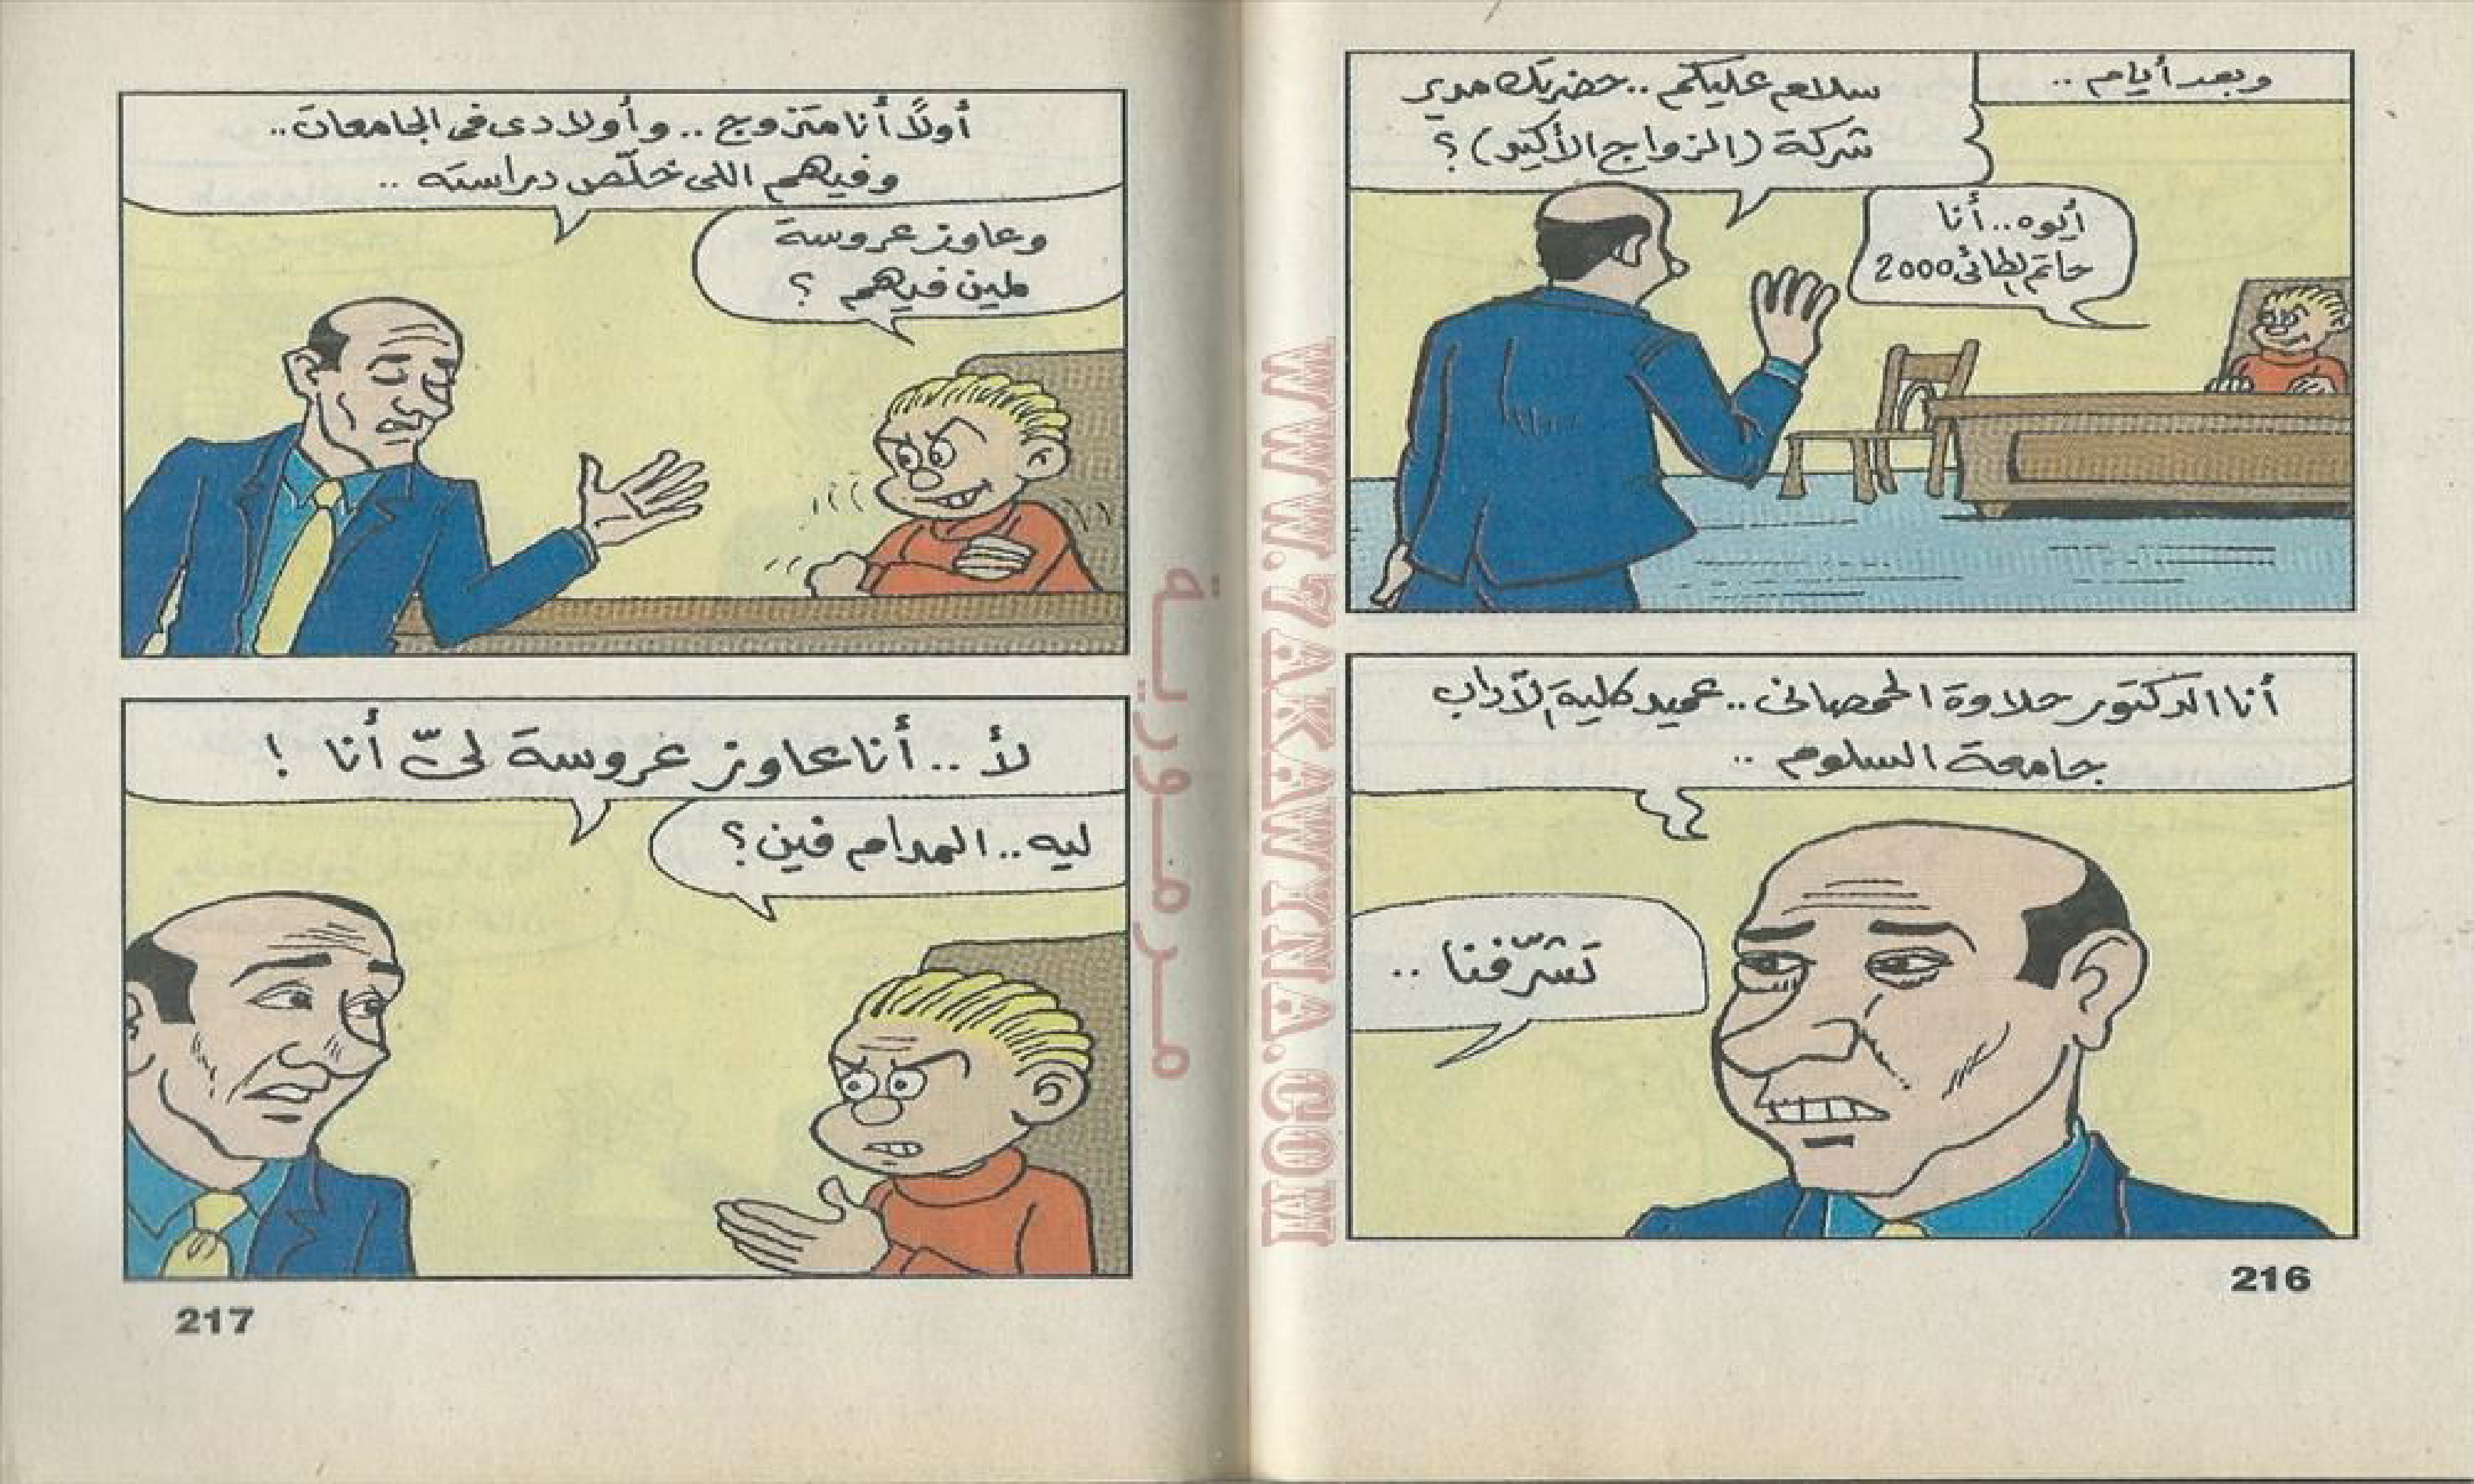 وبعد أيام ..
سلام عليكم .. حضرتك مدير
شركة (الزواج الأكيد) ؟
أيوه .. أنا
حاتم الطائى 2000
أنا الدكتور حلاوة الحمصانى .. عميد كلية الآداب
جامعة السلوم ..
تشرّفنا ..
216
أولاً أنا متزوج .. وأولادى فى الجامعات ..
وفيهم اللى خلّص دراسته ..
وعاوز عروسة
لمين فيهم ؟
لأ .. أنا عاوز عروسة لىّ أنا !
ليه .. المدام فين ؟
217
مرمورية
WWW.7AKAWYNA.COM